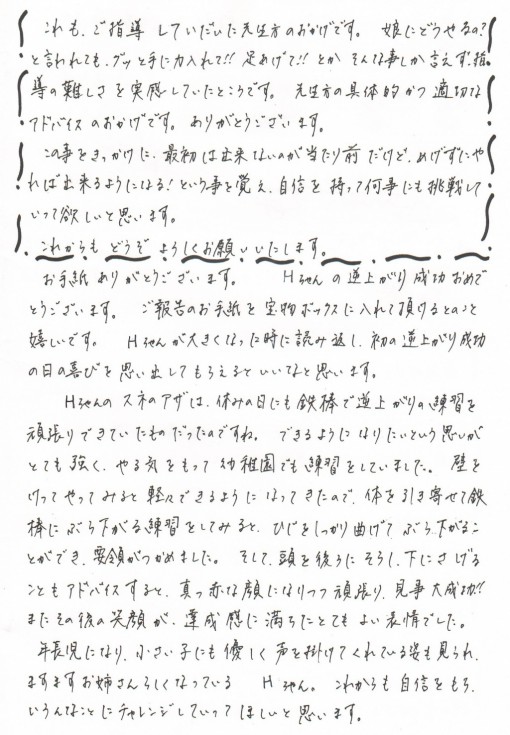 これも、ご指導していただいた先生方のおかげです。 娘にどうやるの?
と言われても、グッと手に力入れて!! 足あげて!! とか そんな事しか言えず、指
導の難しさを実感していたところです。 先生方の具体的かつ適切な
アドバイスのおかげです。ありがとうございます。
この事をきっかけに、最初は出来ないのが当たり前だけど、めげずにや
れば出来るようになる!という事を覚え、自信を持って何事にも挑戦して
いって欲しいと思います。
これからもどうぞよろしくお願いいたします。
お手紙ありがとうございます。 Hちゃんの逆上がり成功おめで
とうございます。 ご報告のお手紙を宝物ボックスに入れて頂けるとのこと
嬉しいです。 Hちゃんが大きくなった時に読み返し、初の逆上がり成功
の日の喜びを思い出してもらえるといいなと思います。
Hちゃんのスネのアザは、休みの日にも鉄棒で逆上がりの練習を
頑張りできていたものだったのですね。 できるようになりたいという思いが
とても強く、やる気をもって幼稚園でも練習をしていました。 壁を
けってやってみると軽々できるようになってきたので、体を引き寄せて鉄
棒にぶら下がる練習をしてみると、ひじをしっかり曲げてぶら下がるこ
とができ、要領がつかめました。 そして、頭を後ろにそらし、下にさげる
こともアドバイスすると、真っ赤な顔になりつつ頑張り、見事大成功!!
またその後の笑顔が、達成感に満ちたとてもよい表情でした。
年長児になり、小さい子にも優しく声を掛けてくれている姿も見られ、
ますますお姉さんらしくなっている Hちゃん。 これからも自信をもち、
いろんなことにチャレンジしていってほしいと思います。